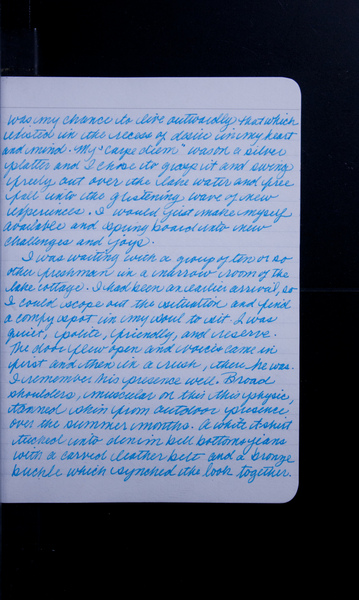 was my chance to live outwardly that which
existed in the recess of desire in my heart
and mind. My "carpe diem" was on a silver
platter and I chose to grasp it and swing
freely out over the lake water and free
fall into the glistening wave of new
experiences. I would just make myself
available and spring board into new
challenges and joys.
I was waiting with a group of ten or so
other freshman in a narrow room of the
lake cottage. I had been an earlier arrival, so
I could scope out the situation and find
a compy spot in my soul to sit. I was
quiet, polite, friendly, and reserve.
The door flew open and voices came in
first and then in a rush, there he was.
I remember his presence well. Broad
shoulders, muscular on this thin physic,
tanned skin from outdoor presence,
over the summer months. A white t-shirt
tucked into denim bell bottoms jeans
with a carved leather belt and a bronze
buckle which synched the look together.